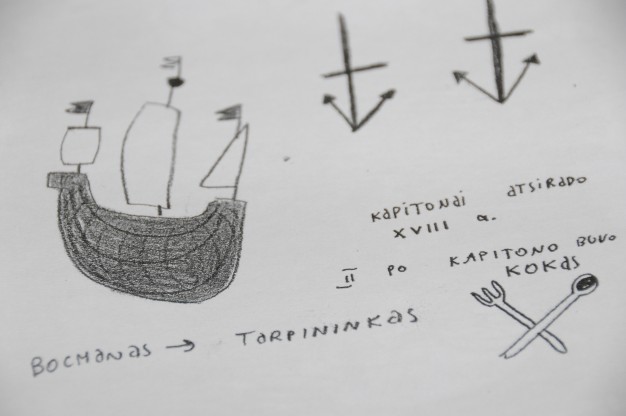 KAPITONAI ATSIRADO
XVIII a.
II PO KAPITONO BUVO
KOKAS
BOCMANAS → TARPININKAS